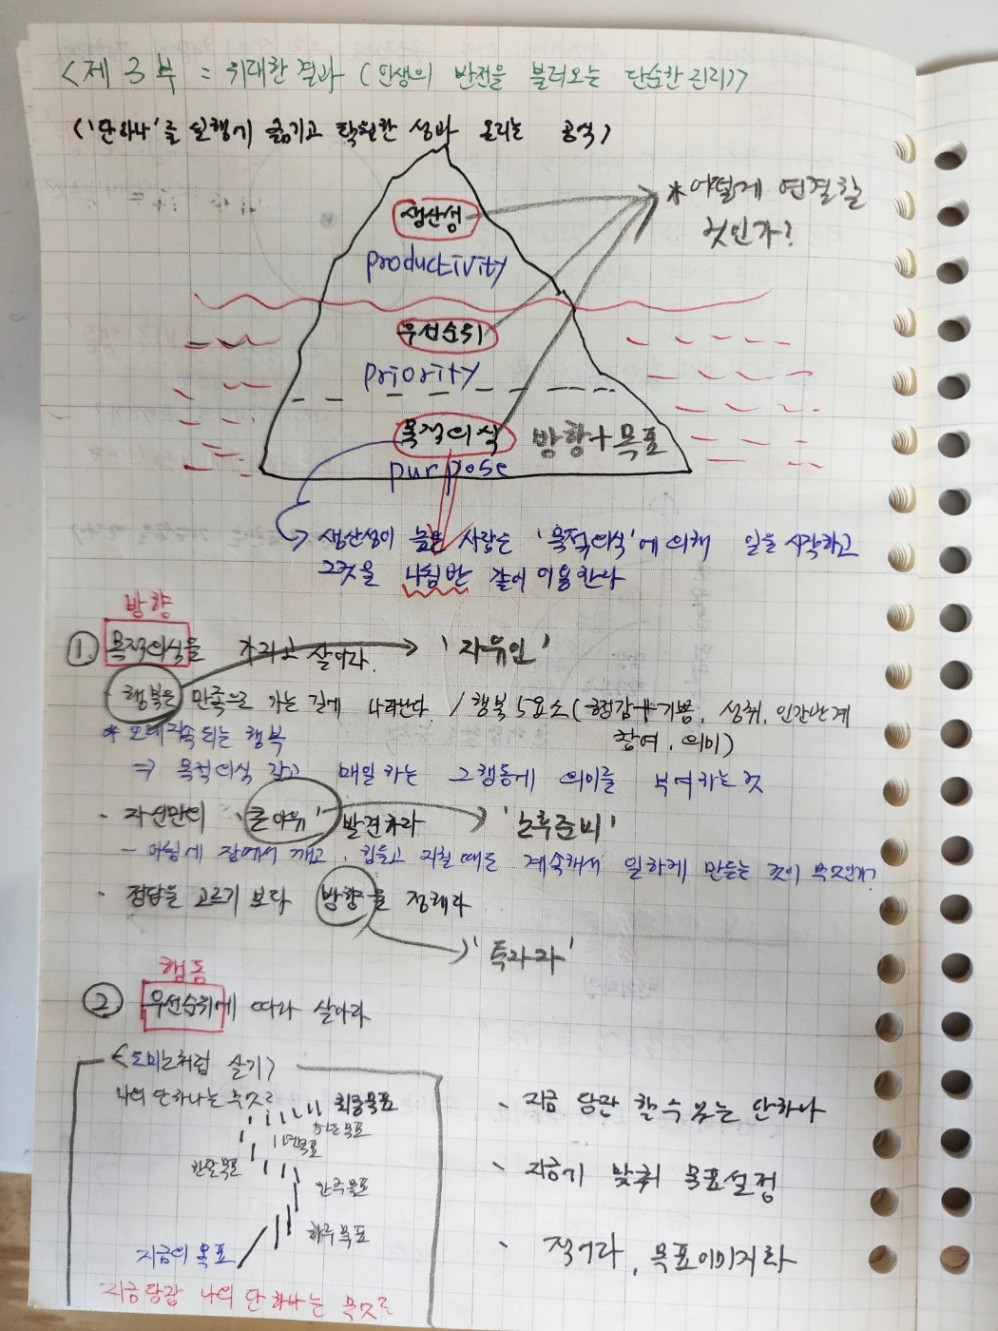 <제 3 부 = 위대한 결과 (인생의 반전을 불러오는 단순한 진리)>
<'단하나'를 실행기 옮기고 탁월한 성과 올리는 공식>
생산성
productivity
*어떻게 연결할
것인가?
우선순위
priority
목적의식
방향+목표
purpose
생산성이 높은 사람은 '목적의식'에 의해 일을 시작하고
그것을 나침반 같이 이용한다
방향
① 목적의식을 가지고 살아라. '자유인'
· 행복은 만족으로 가는 길에 나타난다 / 행복 5요소 (
성취, 인간관계
참여, 의미)
* 오래지속 되는 행복
⇒ 목적의식 갖고 매일 하는 그 행동에 의미를 부여하는 것
· 자신만의 '큰이유' 발견하라 '노후준비'
- 아침에 잠에서 깨고, 힘들고 지칠 때도 계속해서 일하게 만드는 것이 무엇인가?
· 정답을 고르기 보다 방향을 정해라
'투자자'
행동
② 우선순위에 따라 살아라
<도미노처럼 살기>
나의 단하나는 무엇?
최종목표
한달목표
한주목표
하루목표
지금의 목표
지금 당장 나의 단 하나는 무엇?
- 지금 당장 할 수 있는 단하나
- 지금기 맞춰 목표설정
- 적어라, 목표이미지화